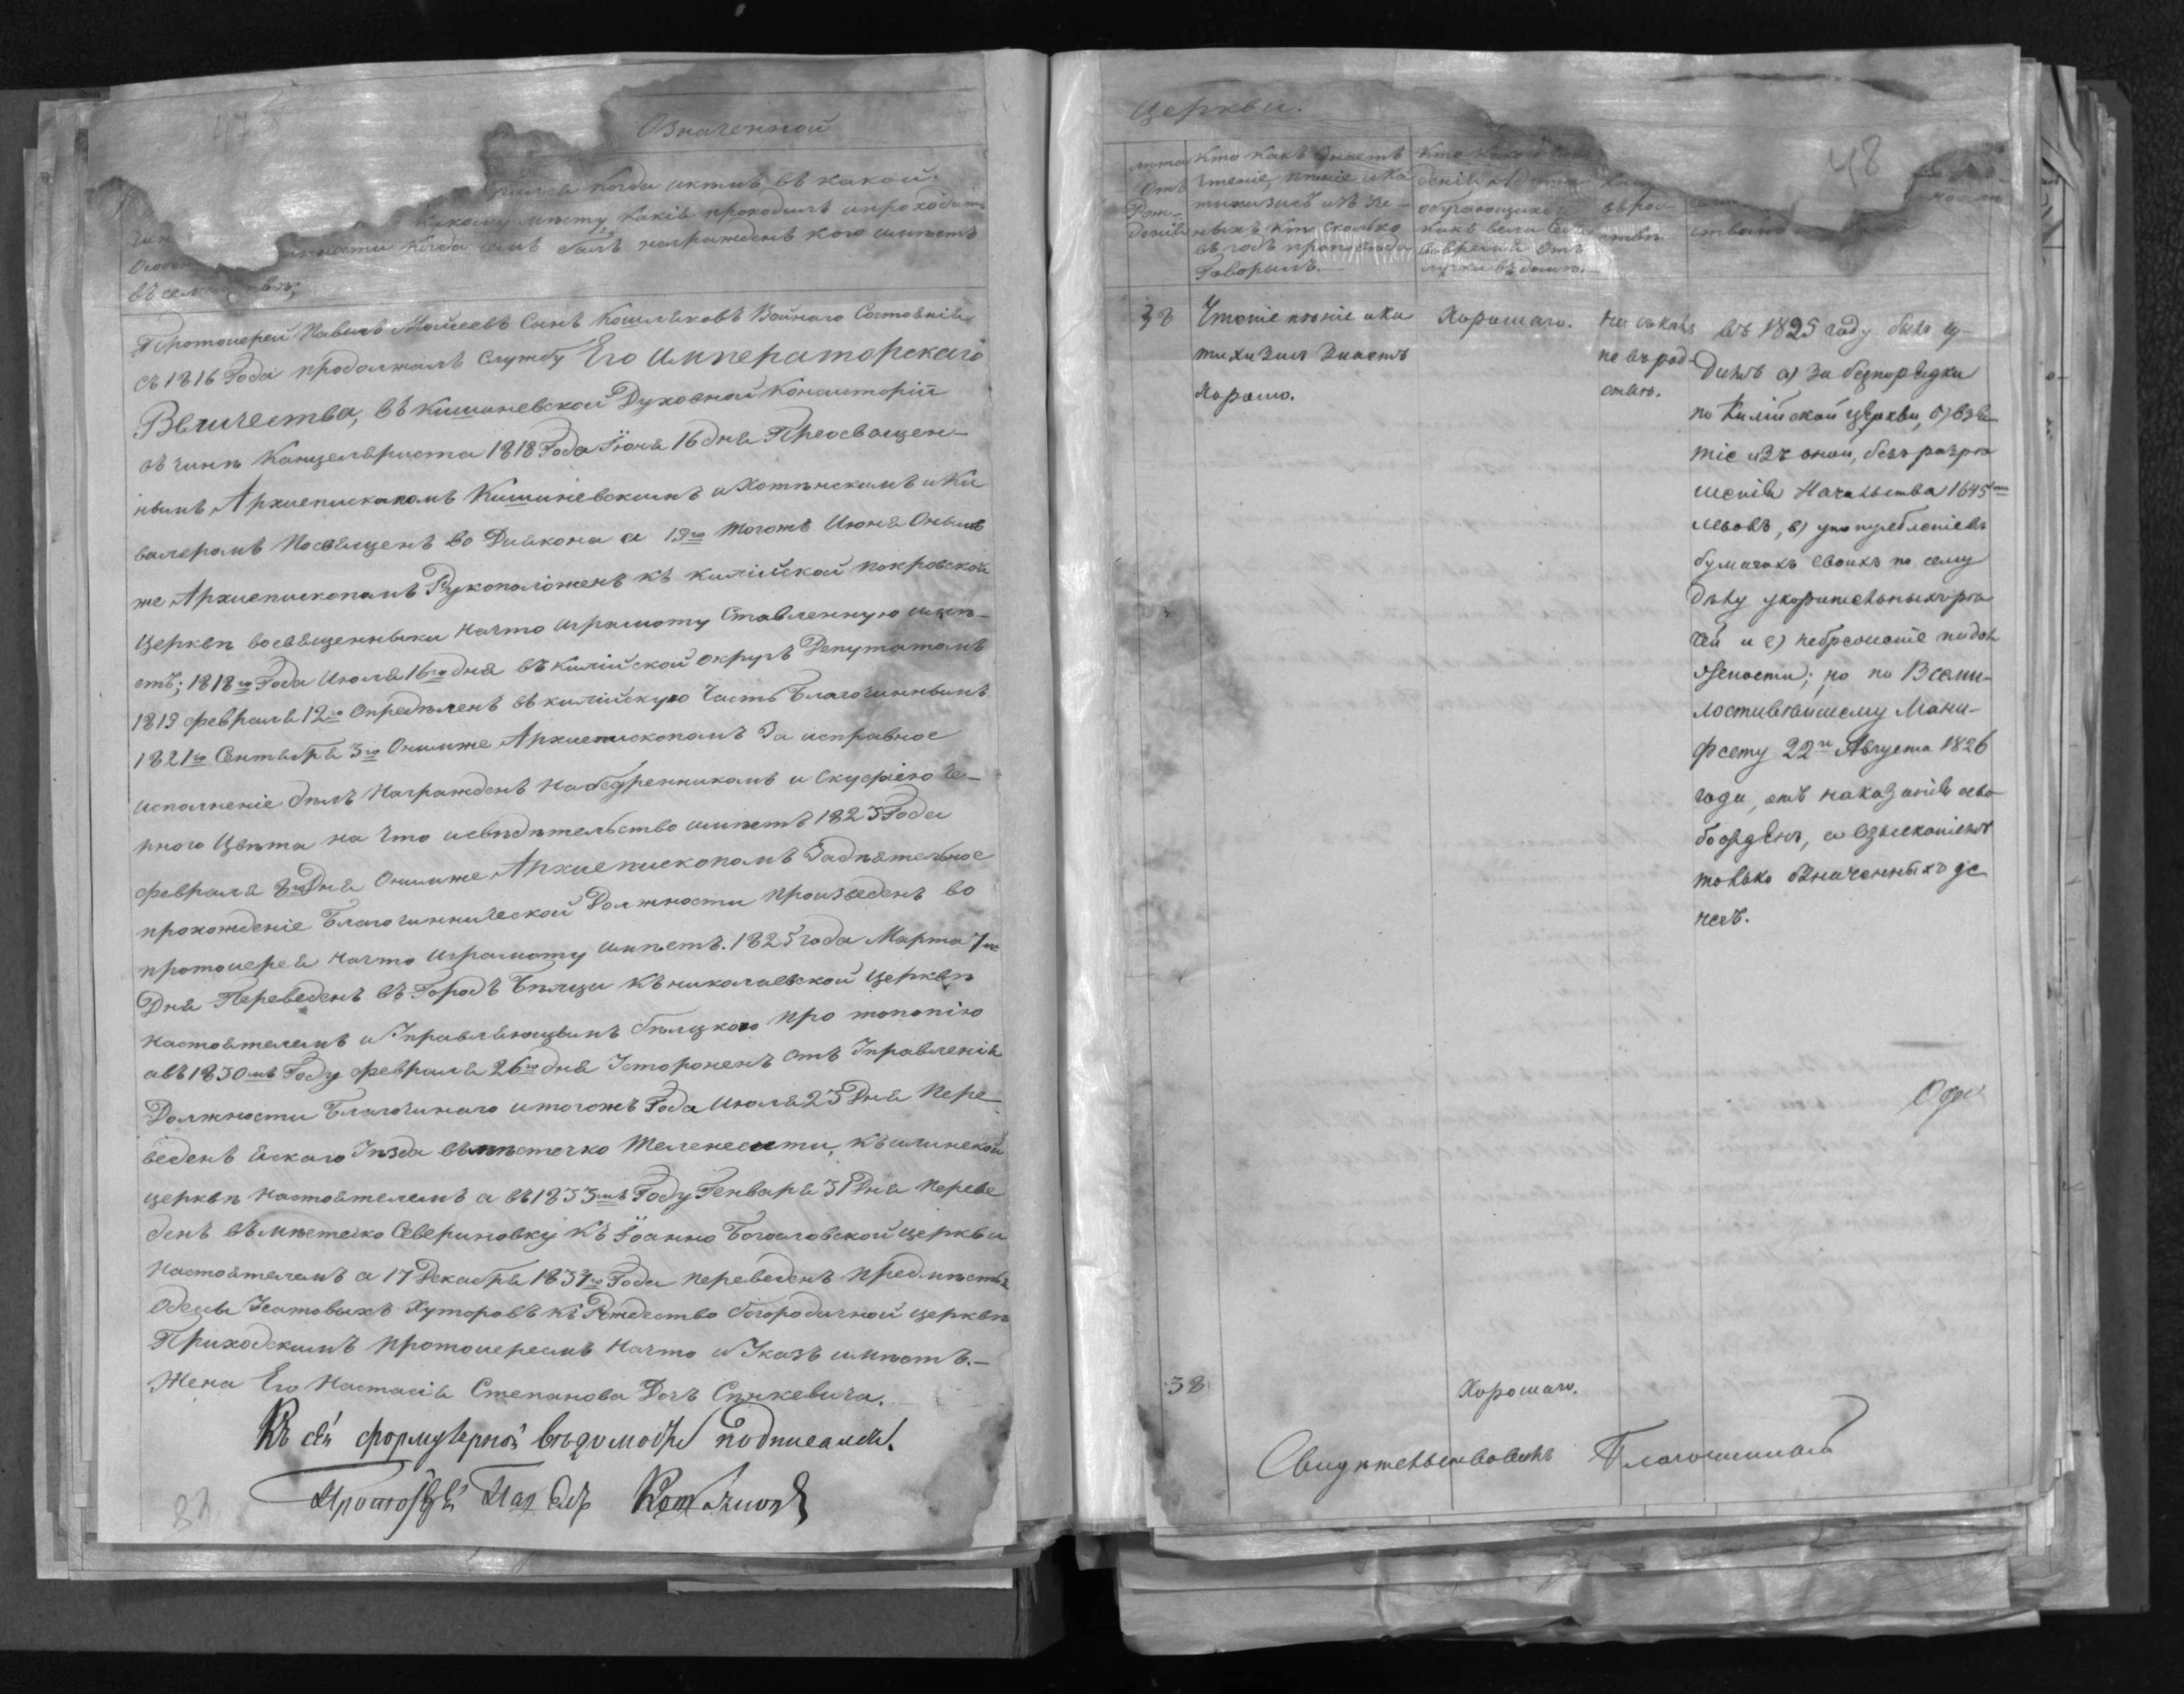 Означенной
когда иктитъ, въ какой
какому мѣсту, какія проходилъ ипроходитъ
когда чемъ былъ награжденъ кого имѣетъ
въ
Протоиерей Павелъ Мойсеевъ Сынъ Кошляковъ Воинаго Состоянія
съ 1816 Года продолжалъ службу Его Императорскаго
Величества, въ Кишиневской Духовной Консисторіи
въ чинѣ Канцеляриста 1818 Года Іюня 16 дня Преосвящен-
нымъ Архиепископомъ Кишиневскимъ и Хотинскимъ и Ка
валеромъ Посвященъ во Диякона а 19го тогожъ Июня Онымъ
же Архиепископомъ Рукоположенъ къ килійской покровской
Церквѣ восвященныки начто играмоту Ставленную имѣ-
етъ; 1818го Года Июля 16го дня въ килійской округъ Депутатомъ
1819 февраля 12го Опредѣленъ въ килійскую Часть Благочиннымъ
1821го Сентября 3го Онымже Архиепископомъ За исправное
исполненіе дѣлъ Награжденъ Набедренникомъ и Скуфіею че-
рного Цвѣта на что исвидѣтельство имѣетъ 1823 Года
февраля 8го Дня Онымже Архиепископомъ Задѣятельное
прохожденіе Благочиннической Должности произведенъ во
протоиерея начто играмоту имѣетъ. 1825 года Марта 7го
Дня Переведенъ въ Городъ Бѣлцы Къ николаевской Церквѣ
настоятелемъ и Управляющимъ бѣлцкого про топопію
авъ 1830мъ Году февраля 26го дня Устороненъ отъ Управленія
Должности Благочинаго итогожъ Года Июля 23 Дня Пере-
веденъ Яскаго Уѣзда въ мѣстечко Теленешти, къ илинской
церквѣ настоятелемъ а въ 1833мъ Году Генваря 31 Дня Переве
денъ въ мѣстечко Севериновку къ Іоанно Богословской церкви
Настоятелемъ а 17 Декабря 1834го Года переведенъ предмѣстья
Одессы Усатовыхъ Хуторовъ къ Рждество богородичной церквѣ
Приходскимъ протоиереемъ Начто и Указъ имѣетъ.—
Жена Его Настасія Степанова Дочъ Сѣнкевича.
Къ сей формулярной вѣдомости подписался
Протоіерей Павелъ Кошляковъ
церкви.
48
лѣта
Отъ
Рож-
денія
Кто какъ знаетъ
чтеніе, пѣніе и ка
тихизисъ изъ
ныхъ кто сколько
въ годъ проповѣдей
Говорилъ.—
Кто какого
денія
обучающихся
какъ вела себя
вовремя отъ
лучки въ домѣ.
въ род
ствѣ
38
Чтеніе пѣніе и ка
тихизис знаетъ
хорошо.
Хорошаго.
Ни съ кѣмъ
не въ род-
ствѣ.
въ 1825 году былъ су-
димъ а) за безпорядки
по Килійской церкви, б) взя
тіе изъ оной, безъ разрѣ
шенія Начальства 1645ти
левовъ, в) употребленіе въ
бумагахъ своихъ по сему
дѣлу укорительныхъ рѣ
чей и г) небреженіе по дол
жности; но по Всеми-
лостивѣйшему Мани-
фесту 22го Августа 1826
года, отъ наказанія осво
божденъ, а взысканіемъ
только означенныхъ де
негъ.
38
Хорошаго.
Свидѣтельствовалъ Благочинный